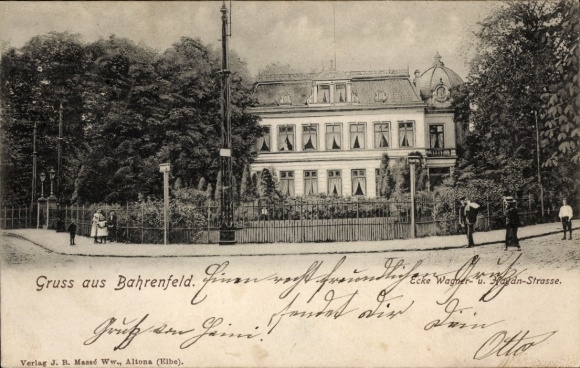 Gruss aus Bahrenfeld.
Ecke Wagner- u. Haydn-Strasse.
Einen recht freundlichen Gruß
sendet dir dein
Otto
Gruß von Heini.
Verlag J. B. Massé Ww., Altona (Elbe).